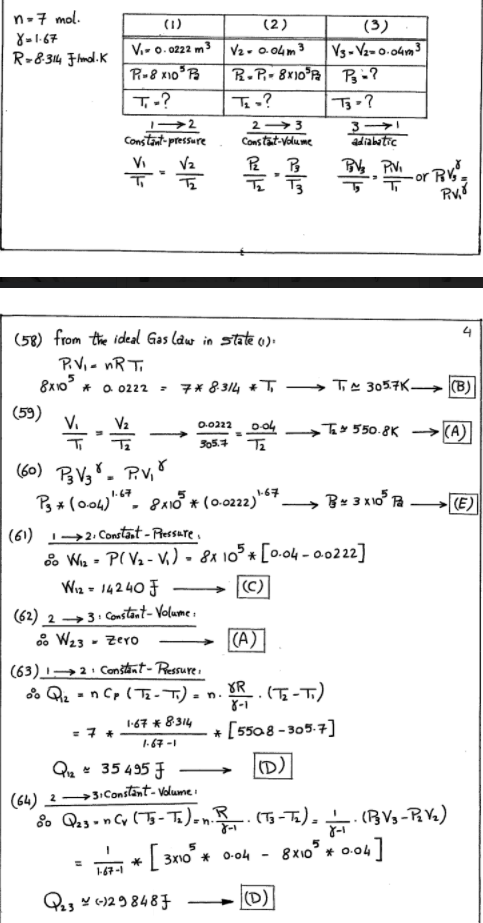 n=7 mol.
γ=1.67
R=8.314 J/mol.K
(1) (2) (3)
V₁= 0.0222 m³ V₂= 0.04m³ V₃=V₂=0.04m³
P₁=8 x10⁵ Pa P₂=P₁= 8x10⁵Pa P₃=?
T₁=? T₂=? T₃=?
1→2 2→3 3→1
Constant-pressure Constant-Volume adiabatic
V₁/T₁ = V₂/T₂ P₂/T₂ = P₃/T₃ P₃V₃/T₃ = P₁V₁/T₁ or P₃V₃^γ =
P₁V₁^γ
4
(58) from the ideal Gas Law in state (1):
P₁V₁ = nRT₁
8x10⁵ * 0.0222 = 7* 8.314 *T₁ → T₁ ≃ 305.7K → (B)
(59) V₁/T₁ = V₂/T₂ → 0.0222/305.7 = 0.04/T₂ → T₂ ≃ 550.8K → (A)
(60) P₃V₃^γ = P₁V₁^γ
P₃ * (0.04)^1.67 = 8x10⁵ * (0.0222)^1.67 → P₃ ≃ 3 x10⁵ Pa → (E)
(61) 1→2: Constant-Pressure:
∴ W₁₂ = P(V₂-V₁) = 8x 10⁵ * [0.04 - 0.0222]
W₁₂ = 14240 J → (C)
(62) 2→3: Constant-Volume:
∴ W₂₃ = zero → (A)
(63) 1→2: Constant-Pressure:
∴ Q₁₂ = n Cp (T₂-T₁) = n. γR/γ-1 . (T₂-T₁)
= 7 * 1.67 * 8.314/1.67-1 * [550.8-305.7]
Q₁₂ ≃ 35495 J → (D)
(64) 2→3: Constant-Volume:
∴ Q₂₃ = n Cv (T₃-T₂) = n. R/γ-1 . (T₃-T₂) = 1/γ-1 . (P₃V₃-P₂V₂)
= 1/1.67-1 * [3x10⁵ * 0.04 - 8x10⁵ * 0.04]
Q₂₃ ≃ (-)29848J → (D)